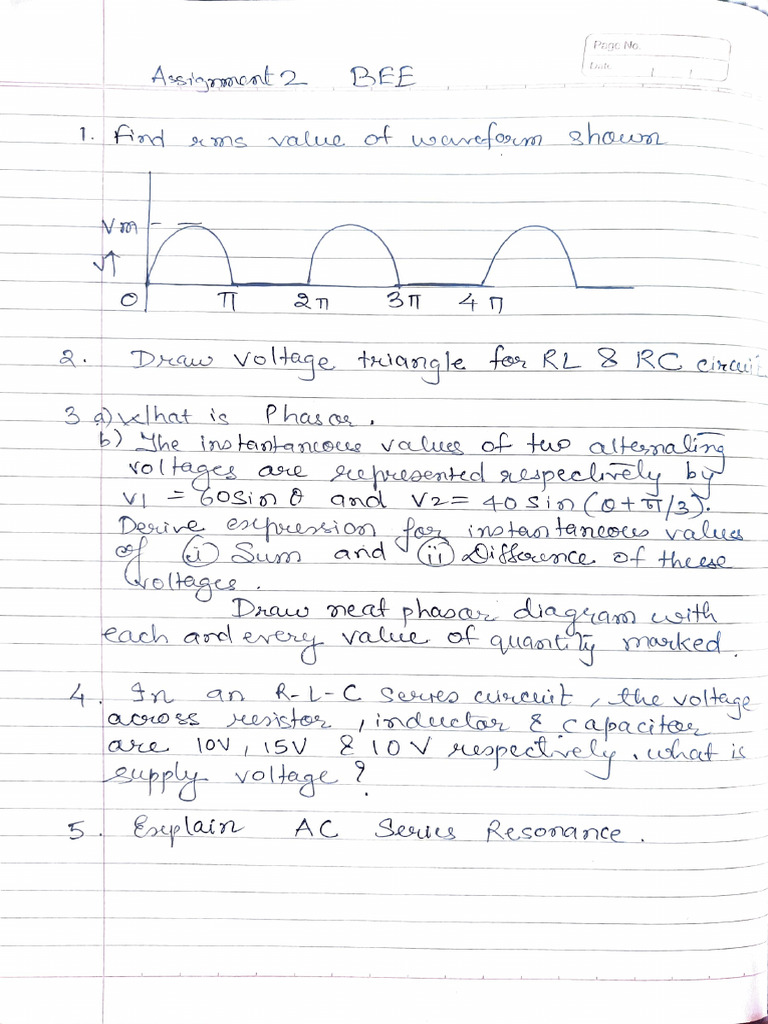 Page No.
Date
Assignment 2 BEE
1. Find rms value of waveform shown
Vm
V↑
0 π 2π 3π 4π
2. Draw voltage triangle for RL & RC circuit
3 a) What is Phasor.
b) The instantaneous values of two alternating
voltages are represented respectively by
v1 = 60 sin θ and v2 = 40 sin (θ + π/3).
Derive expression for instantaneous values
of (i) Sum and (ii) Difference of these
voltages.
Draw neat phasor diagram with
each and every value of quantity marked.
4. In an R-L-C series circuit, the voltage
across resistor, inductor & capacitor
are 10V, 15V & 10V respectively. what is
supply voltage?
5. Explain AC Series Resonance.